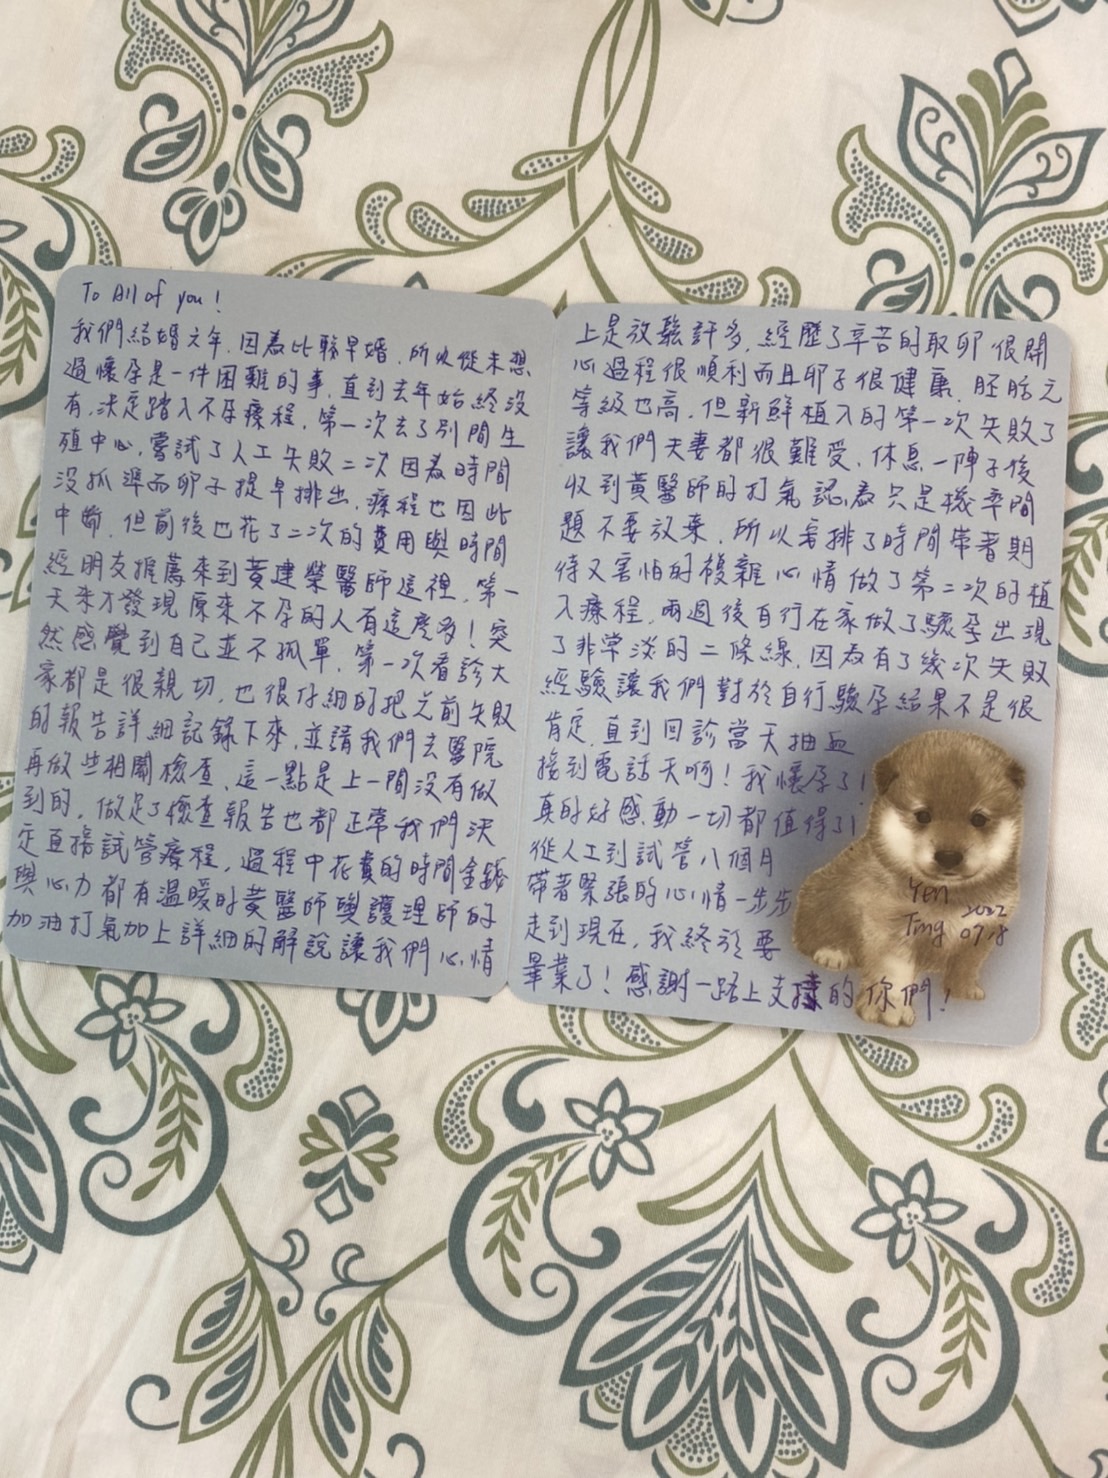 To All of you!
我們結婚六年，因為比較早婚，所以從未想
過懷孕是一件困難的事，直到去年始終沒
有，決定踏入不孕療程，第一次去了別間生
殖中心，嘗試了人工失敗二次因為時間
沒抓準而卵子提早排出，療程也因此
中斷，但前後也花了二次的費用與時間
經朋友推薦來到黃建榮醫師這裡，第一
天來才發現原來不孕的人有這麼多！突
然感覺到自己並不孤單，第一次看診大
家都是很親切，也很仔細的把之前失敗
的報告詳細記錄下來，並請我們去醫院
再做些相關檢查，這一點是上一間沒有做
到的，做足了檢查報告也都正常我們決
定直接試管療程，過程中花費的時間金錢
與心力都有溫暖的黃醫師與護理師的
加油打氣加上詳細的解說讓我們心情
上是放鬆許多，經歷了辛苦的取卵很開
心過程很順利而且卵子很健康，胚胎
等級也高，但新鮮植入的第一次失敗了
讓我們夫妻都很難受，休息一陣子後
收到黃醫師的打氣認為只是機率問
題不要放棄，所以安排了時間帶著期
待又害怕的複雜心情做了第二次的植
入療程，兩週後自行在家做了驗孕出現
了非常淡的二條線，因為有了幾次失敗
經驗讓我們對於自行驗孕結果不是很
肯定，直到回診當天抽血
接到電話天啊！我懷孕了！
真的好感動一切都值得了！
從人工到試管八個月
帶著緊張的心情一步步
走到現在，我終於要
畢業了！感謝一路上支撐的你們！
Yen
Ting
2022
07.18